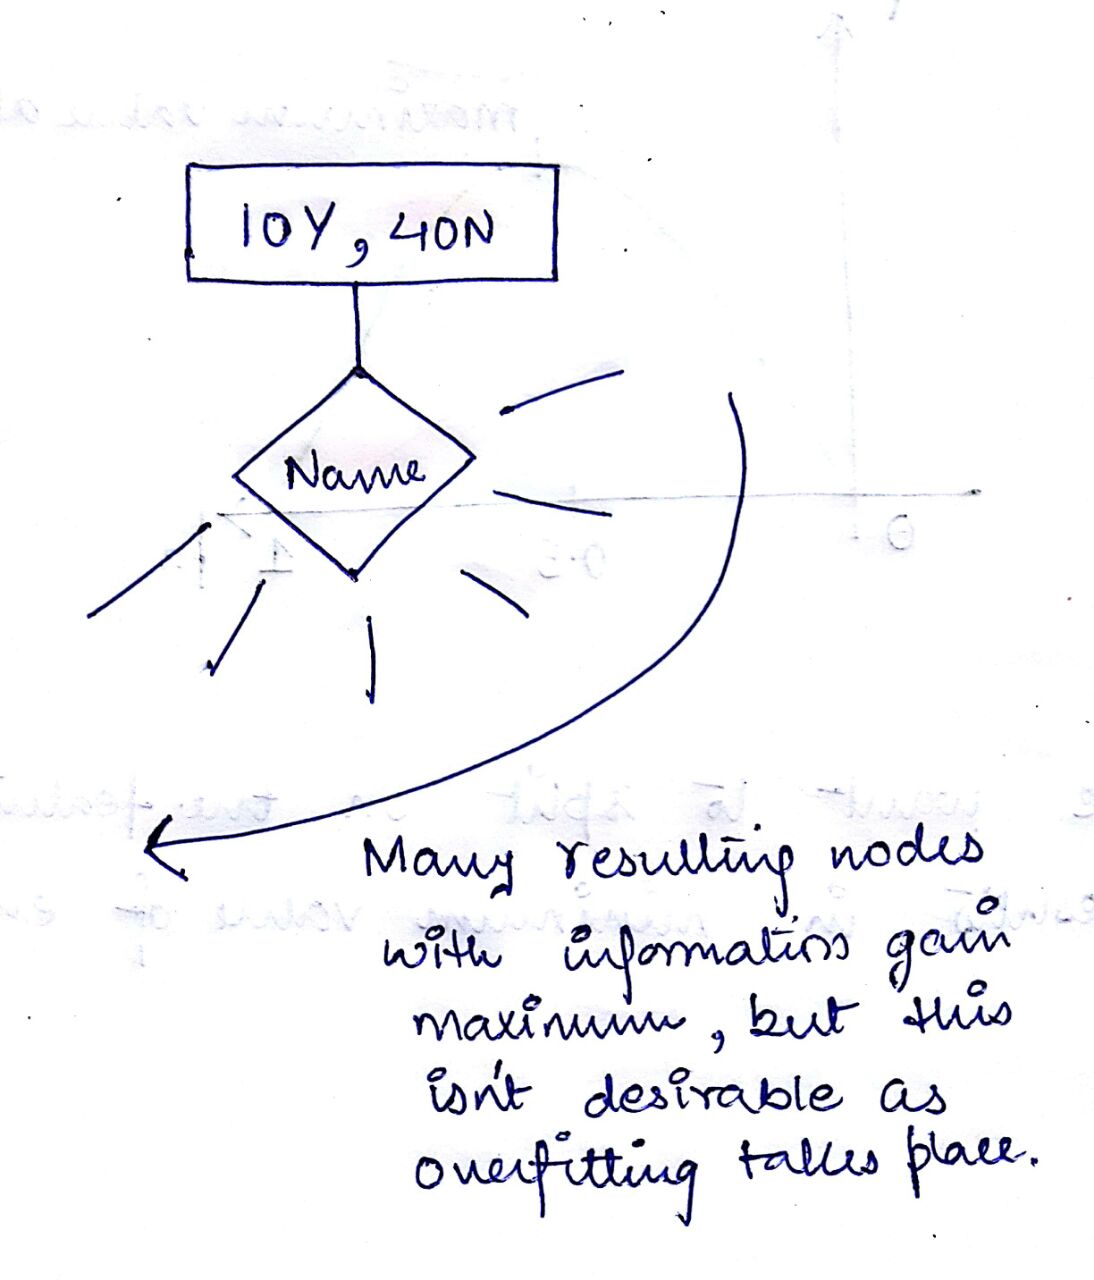 10Y, 40N
Name
Many resulting nodes
with information gain
maximum, but this
isn't desirable as
overfitting takes place.